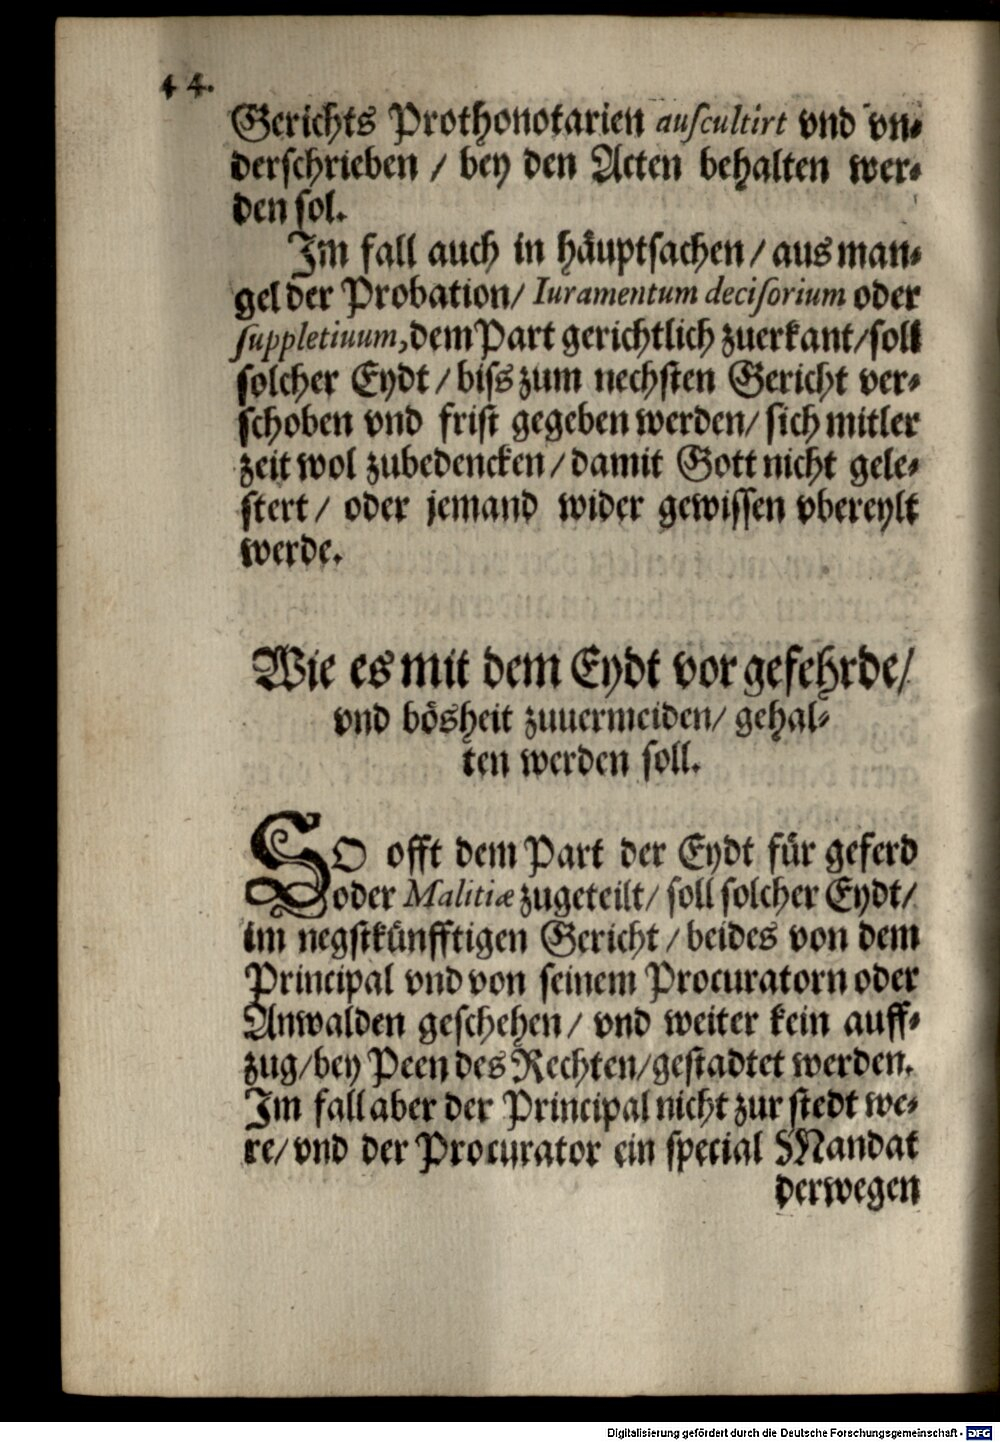 44.
Gerichts Prothonotarien auſcultirt vnd vn⸗
derſchrieben / bey den Acten behalten wer⸗
den ſol.
Im fall auch in häuptſachen / aus man⸗
gel der Probation / Iuramentum deciſorium oder
ſuppletiuum, dem Part gerichtlich zuerkant / ſoll
ſolcher Eydt / biſs zum nechſten Gericht ver⸗
ſchoben vnd friſt gegeben werden / ſich mitler
zeit wol zubedencken / damit Gott nicht gele⸗
ſtert / oder jemand wider gewiſſen vbereylt
werde.
Wie es mit dem Eydt vor gefehrde /
vnd bösheit zuuermeiden / gehal⸗
ten werden ſoll.
SO offt dem Part der Eydt für geferd
oder Malitiæ zugeteilt / ſoll ſolcher Eydt /
im negſtkünfftigen Gericht / beides von dem
Principal vnd von ſeinem Procuratorn oder
Anwalden geſchehen / vnd weiter kein auff⸗
zug / bey Peen des Rechten / geſtadtet werden.
Im fall aber der Principal nicht zur ſtedt we⸗
re / vnd der Procurator ein ſpecial Mandat
derwegen
Digitalisierung gefördert durch die Deutsche Forschungsgemeinschaft - DFG